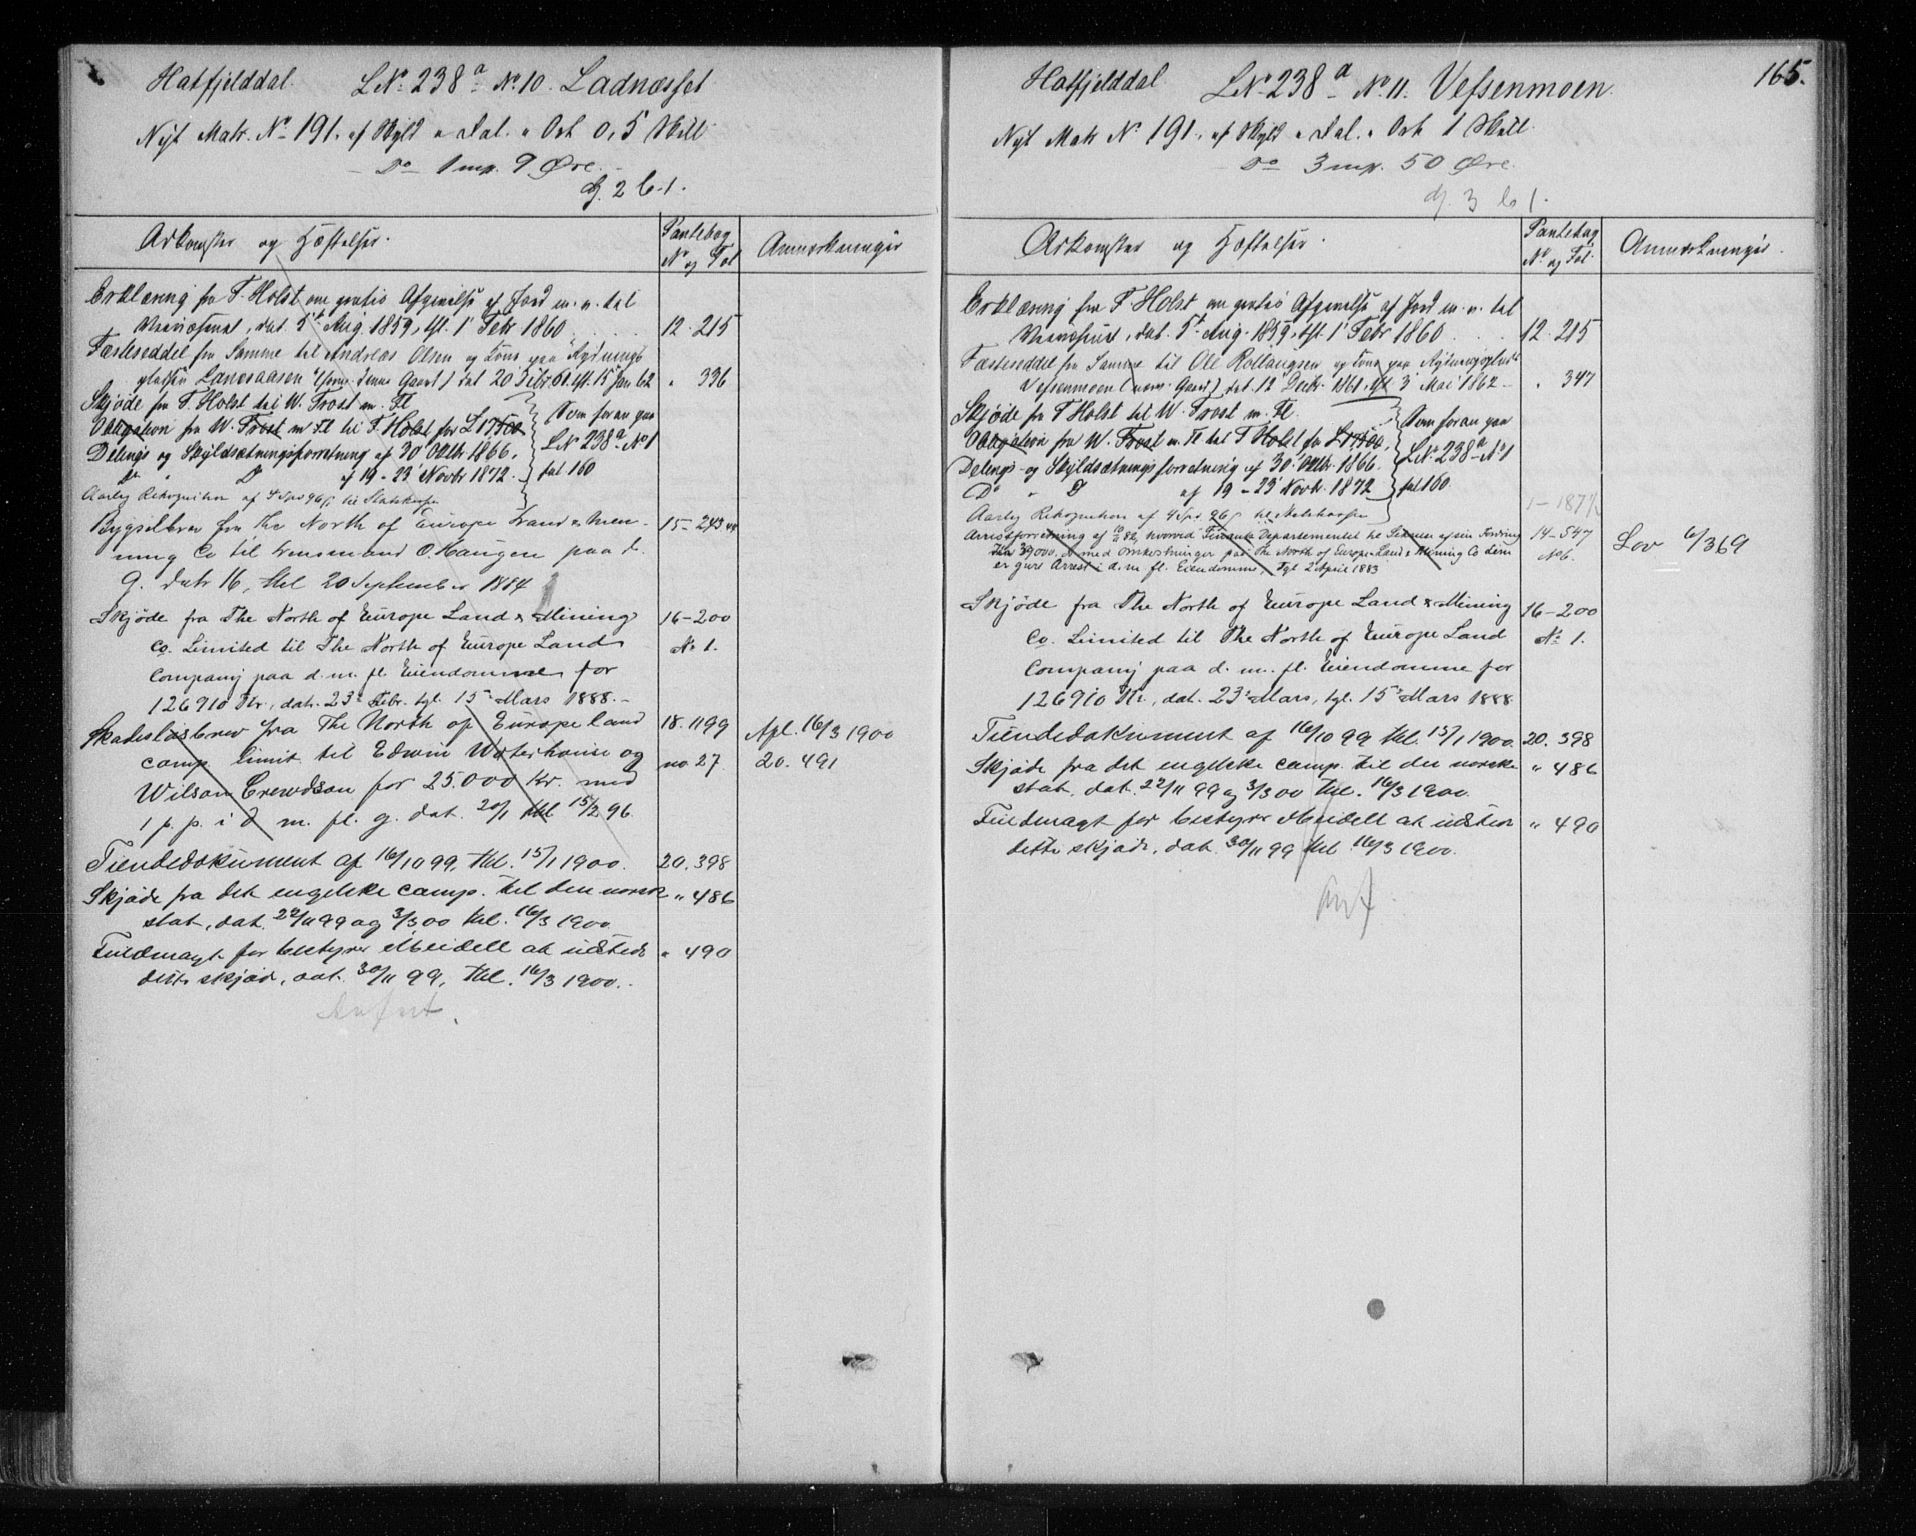 Hatfjelddal. L.No 238a No 10. Ladnæsset
Nyt Matr. No 191. af Skyld " Dal. " Ort 0,5 Skill
Do 1 mp. 9 Øre.
Adkomster og Hæftelser.
Pantebog
No og Fol
Anmærkninger
Erklæring fra F. Holst om gratis Afgivelse af Jord m. v. til
dat. 5t Aug. 1859, tgl. 1 Febr 1860 12. 215
Fæsteseddel fra Samme til Andreas Olsen og Kone paa Rydnings
pladsen denne Gaard) dat 20 61. tgl. 15 Jan 62 " 336
Skjøde fra F. Holst til W. Frost m. Fl
Obligation fra W. Frost m Fl til F. Holst for
Som foran paa
L No 238a No 1
fol 160
Delings og Skyldsætningsforretning af 30 Oktbr. 1866.
Do " D af 19 - 23 Novbr 1872.
Aarlig Rekognition af 4 Spd 96 s. til Statskassen
Bygselbrev fra The North of Europe Land & Men- 15-243
ning Co til Lensmand O. Haugen paa d.
G. Datr 16, thl 20 September 1884
Skjøde fra The North of Europe Land & Mining 16-200
Co. Limited til The North of Europe Land No 1.
Company paa d. m. fl. Eiendomme for
126910 Kr., datr. 23 Febr. tgl. 15 Mars 1888.
Skadesløsbrev fra The North of Europe land 18. 1199 Apl. 16/3 1900
camp. limit. til Edwin Waterhouse og no 27. 20. 491
Wilson Crewdson for 25.000 Kr. med
1 p. p. i d. m. fl. g. dat. 20/1 thl 15/2 96.
Tiendedokument af 16/10 99, thl. 15/1 1900. 20. 398
Skjøde fra det engelske camp. til den norske " 486
stat, dat. 22/11 99 og 3/3 00 thl. 16/3 1900
Fuldmagt for bestyrer Meidell at udstede " 490
dette skjøde, dat. 30/11 99, thl. 16/3 1900.
Hatfjelddal. L.No 238a No 11. Vefsenmoen. 165.
Nyt Matr No 191. af Skyld " Dal. " Ort 1 Skill.
Do 3 mp. 50 Øre.
Adkomster og Hæftelser.
Pantebog
No og Fol.
Anmærkninger.
Erklæring fra F. Holst om gratis Afgivelse af Jord m. v. til
dat. 5t Aug. 1859, tgl. 1 Febr 1860 12. 215
Fæsteseddel fra Samme til Ole Rollaugsen og Kone paa Rydningspladsen
Vefsenmoen dat. 12 Decbr. 1861, tgl 3 Mai 1862 - " 347
Skjøde fra F Holst til W. Frost m. Fl.
Obligation fra W. Frost m. Fl til F Holst for
Som foran paa
L No 238a No 1
fol 160.
Delings- og Skyldsætningsforretning af 30 Oktbr. 1866.
Do " D af 19 - 23 Novb. 1872
Aarlig Rekognition af 4 Spd. 96 s til Statskassen
Arrestforretning af 82, hvorved Finants Departementet til Sikring af sin Fordring 14-547
med Omkostninger paa The North of Europe Land & Mining Co Lim No 6. Lov 6/3 69
er gjort Arrest i d. m. fl. Eiendomme, Tgl 2 April 1883
Skjøde fra The North of Europe Land & Mining 16-200
Co. Limited til The North of Europe Land No 1.
Company paa d. m. fl. Eiendomme for
126910 Kr., dat. 23 Mars, tgl. 15 Mars 1888
Tiendedokument af 16/10 99 thl. 15/1 1900. 20. 398
Skjøde fra det engelske camp. til den norske " 486
stat. dat. 22/11 99 og 3/3 00 thl. 16/3 1900.
Fuldmagt for bestyrer Meidell at udstede " 490
dette skjøde, dat. 30/11 99 thl 16/3 1900.